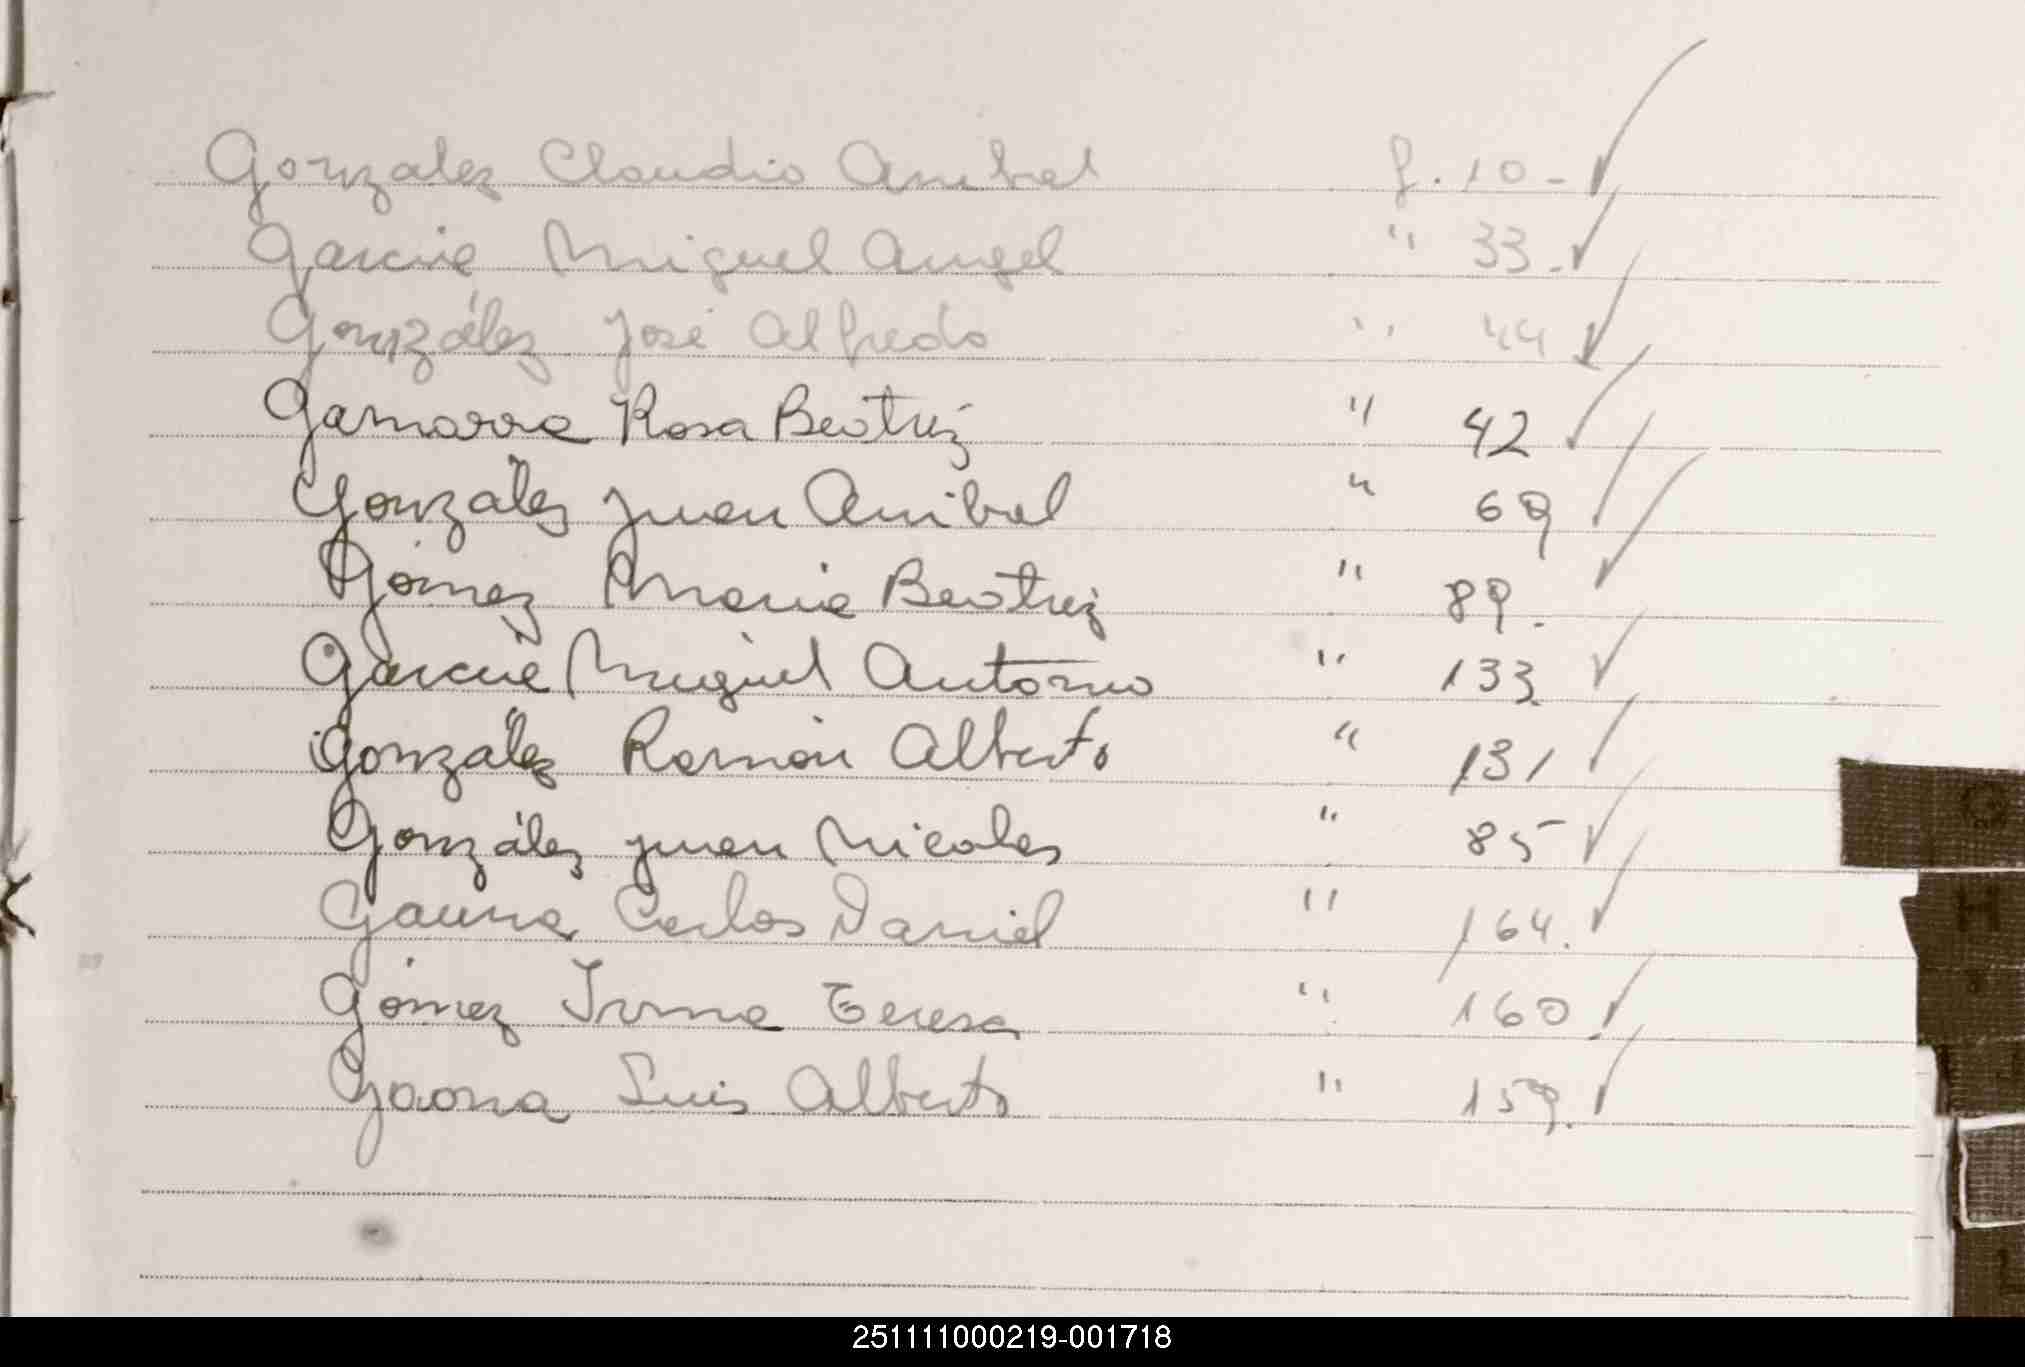 Gonzalez Claudio Anibal f. 10 -
Garcia Miguel Angel " 33.
González José Alfredo " 44
Gamarra Rosa Beatriz " 42
González Juan Anibal " 69
Gómez Maria Beatriz " 89.
Garcia Miguel Antonio " 133
González Ramón Alberto " 131
González Juan Nicolas " 85
Gauna Carlos Daniel " 164.
Gómez Irma Teresa " 160.
Gaona Luis Alberto " 159.
H
L
251111000219-001718